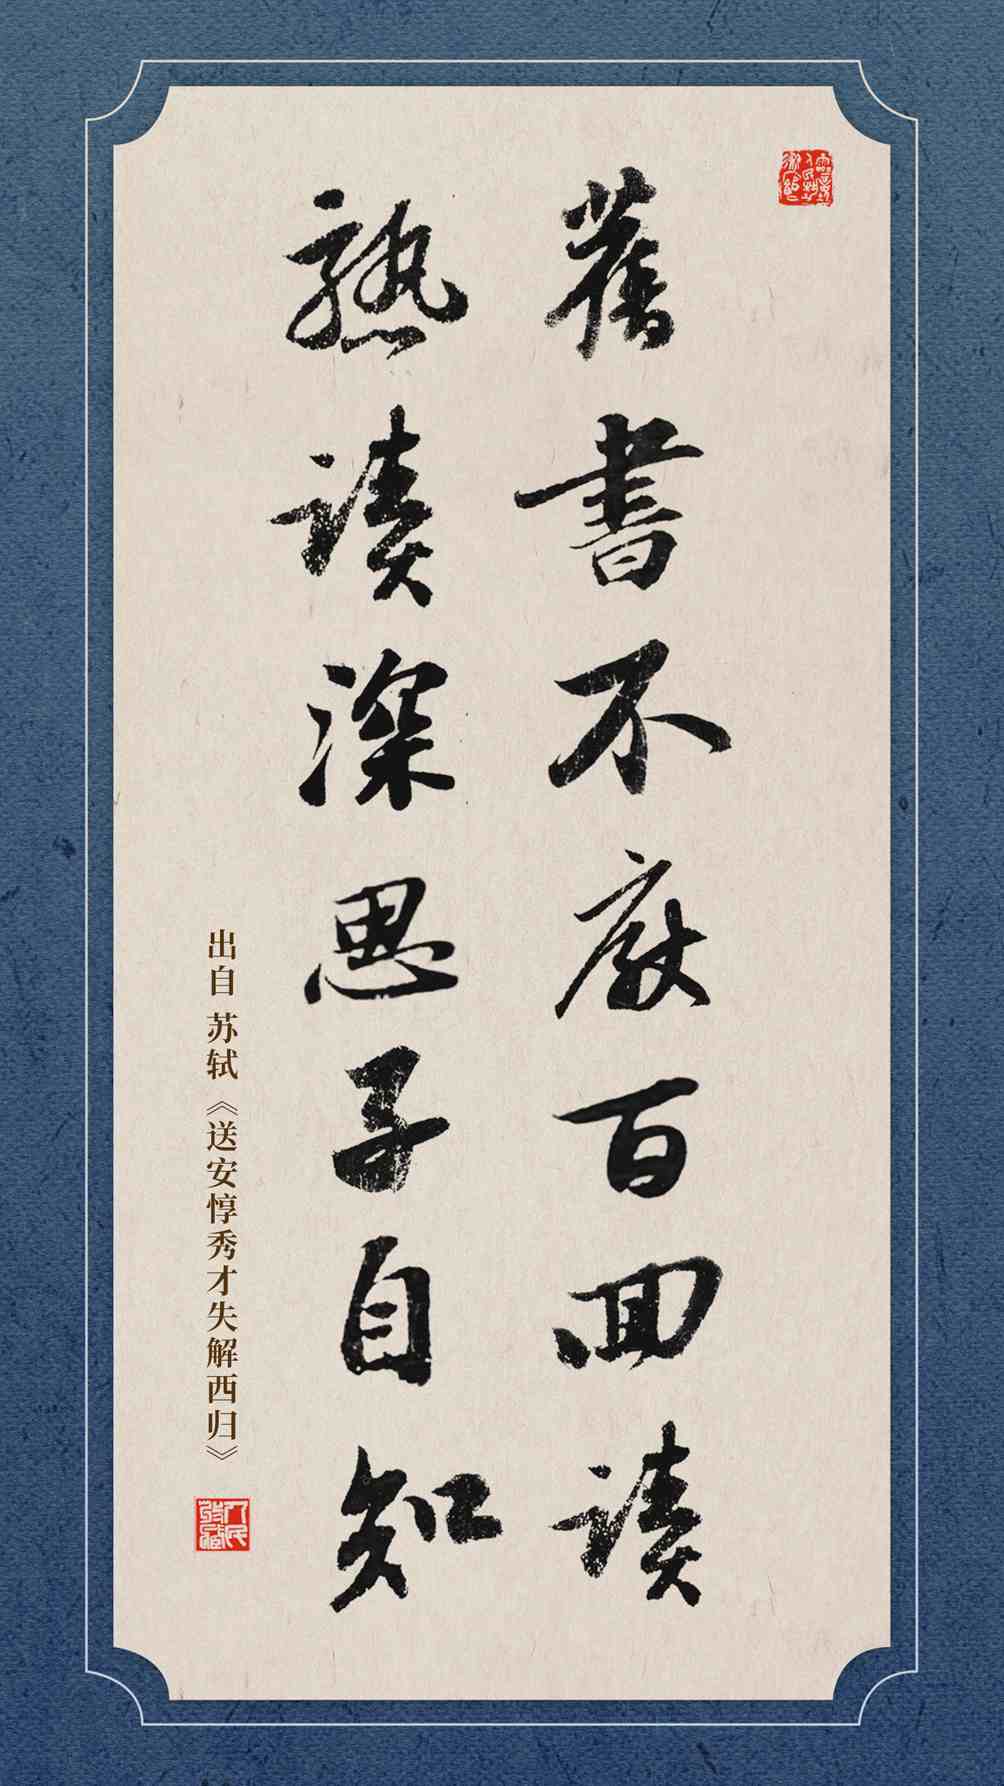 舊書不厭百回讀
熟讀深思子自知
出自 苏轼《送安惇秀才失解西归》